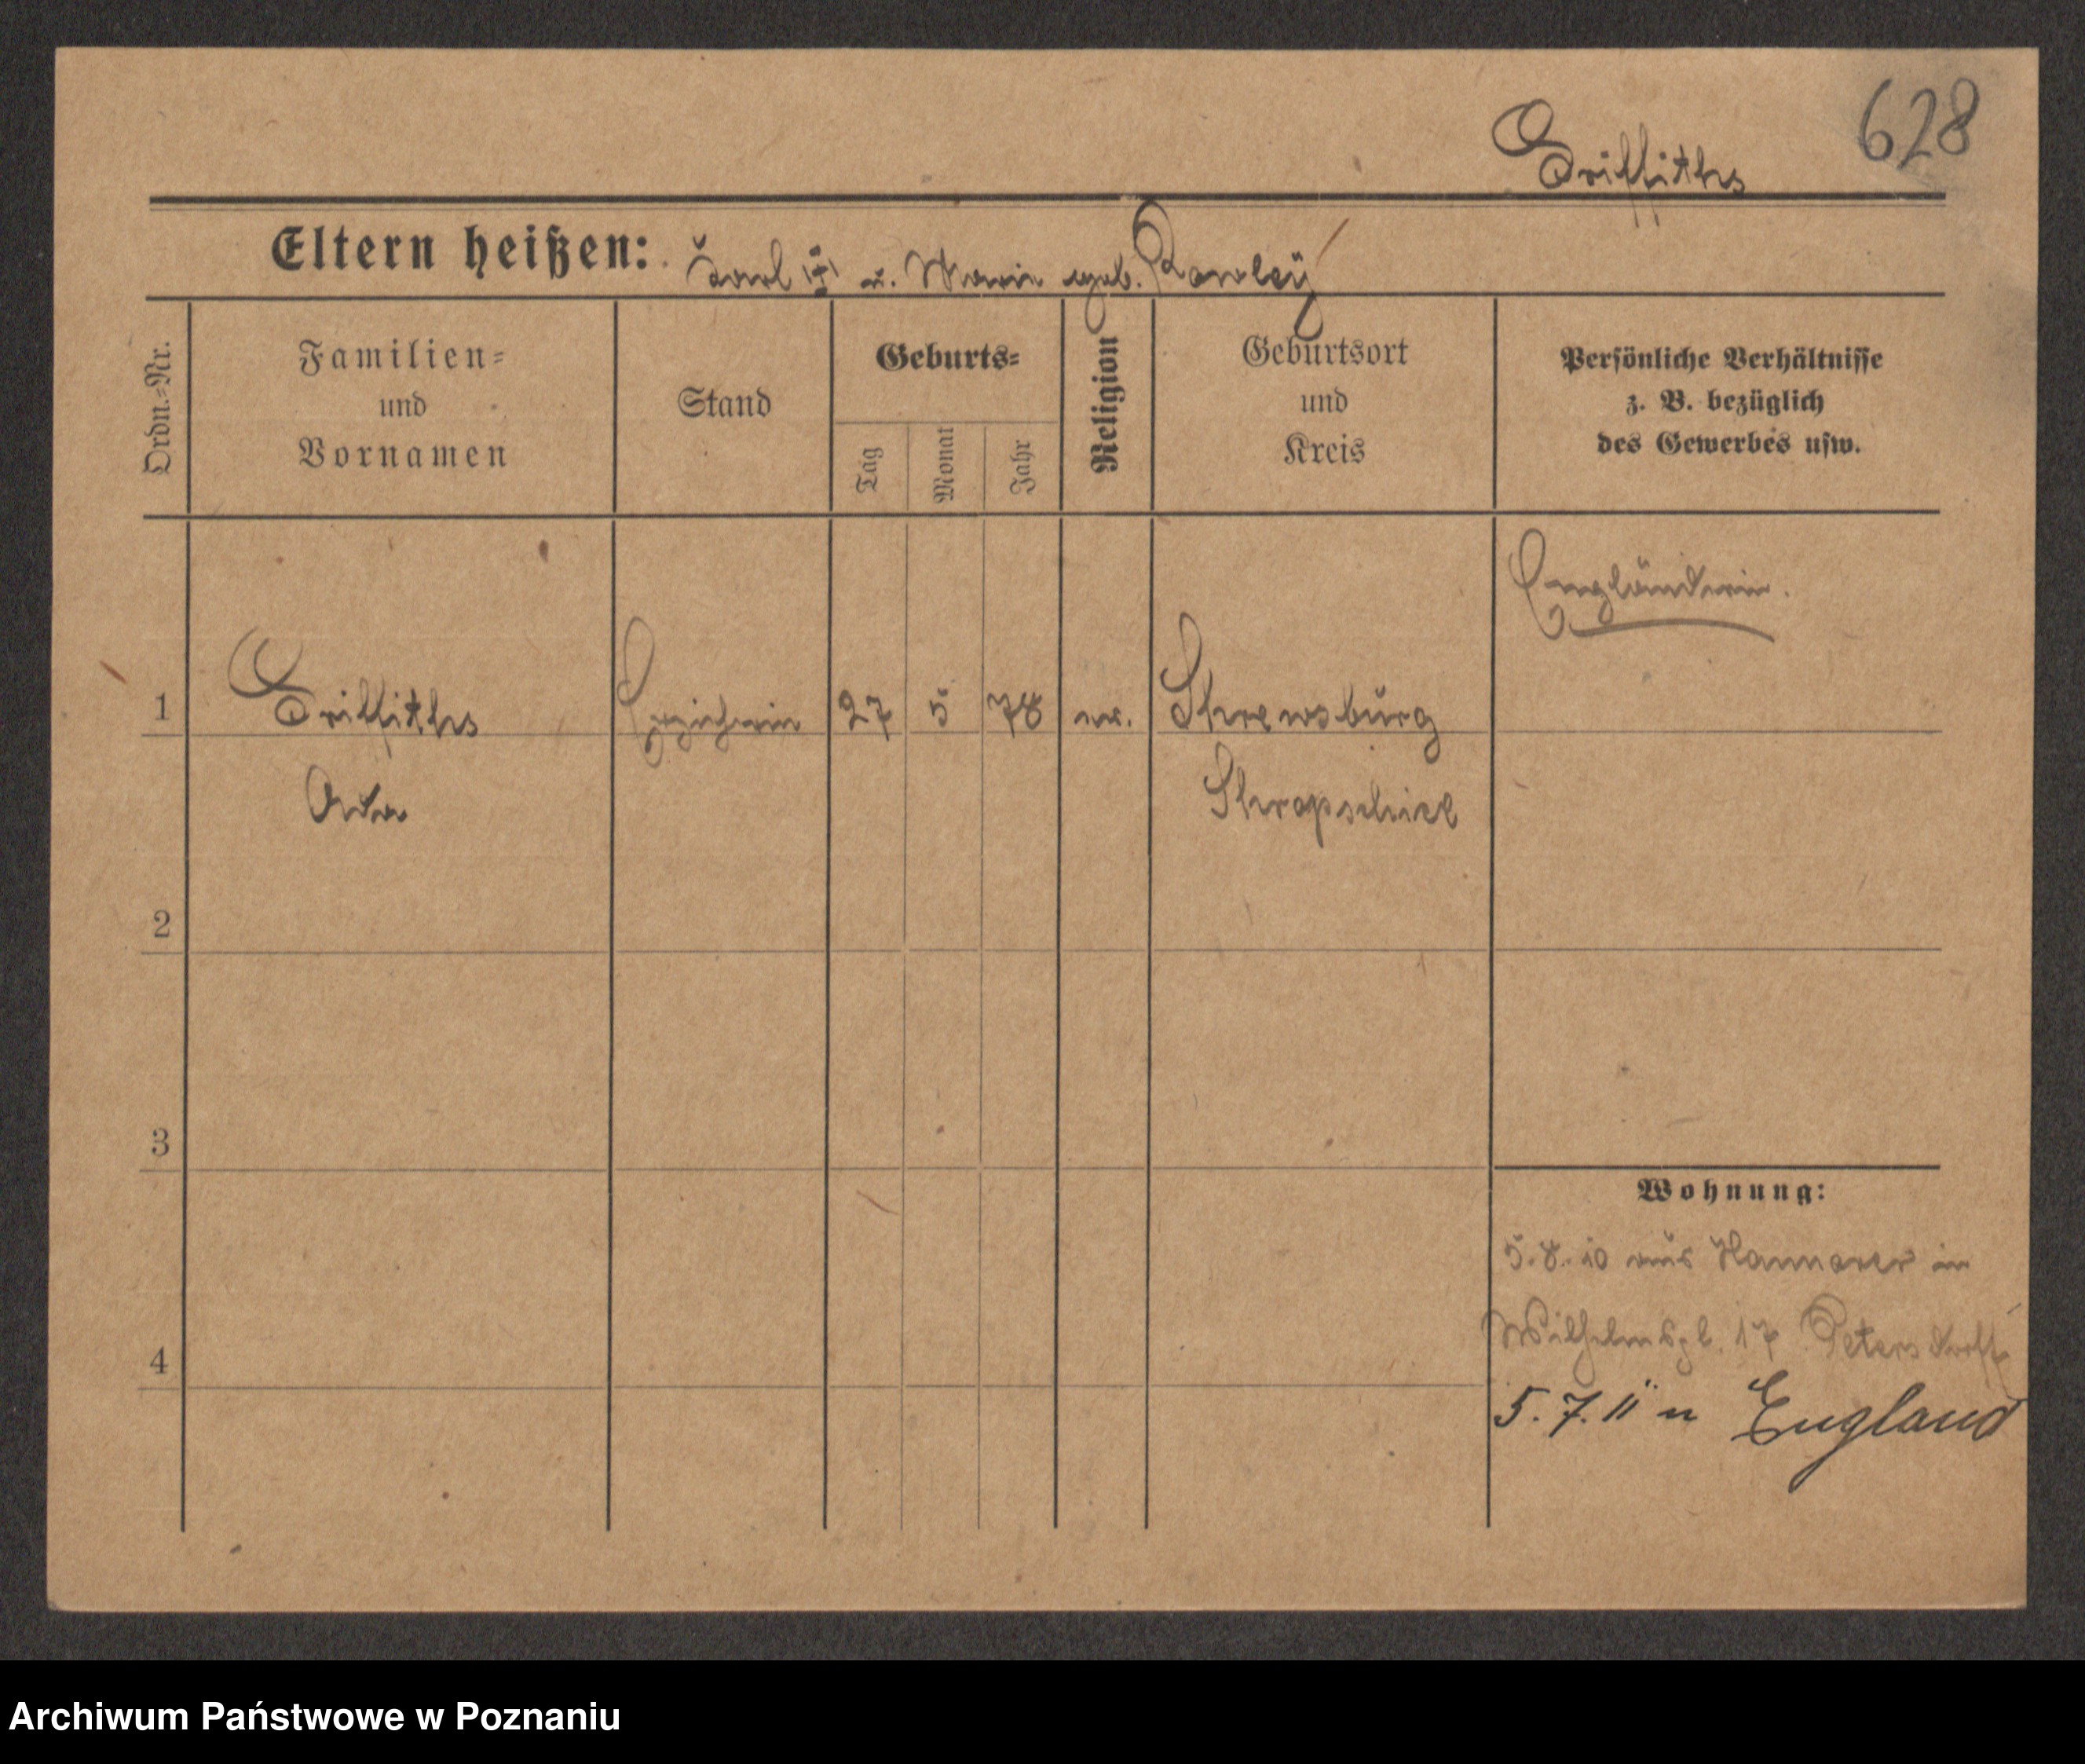 628
Griffiths
Eltern heißen: Karl u. Marie geb. Rowley
Ordn.-Nr.
Familien-
und
Vornamen
Stand
Geburts-
Tag
Monat
Jahr
Religion
Geburtsort
und
Kreis
Persönliche Verhältnisse
z. B. bezüglich
des Gewerbes usw.
Engländerin.
1 Griffiths Erzieherin 27 5 78 ev. Shrewsburg
Ada Shropschire
2
3
4
Wohnung:
5.8.10 aus Hannover in
Wilhelmspl. 17 Petersdorff
5.7.11 n England
Archiwum Państwowe w Poznaniu